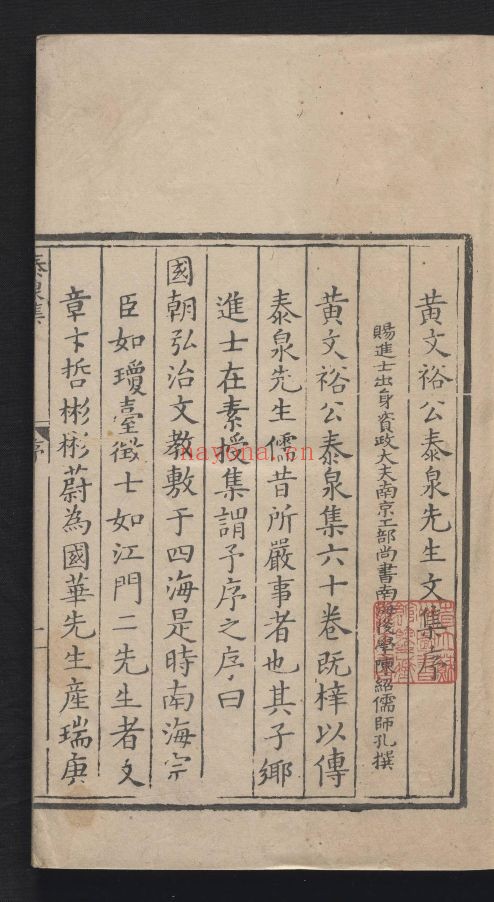 黃文裕公泰泉先生文集序
賜進士出身資政大夫南京工部尚書南海後學陳紹儒師孔撰
黃文裕公泰泉集六十卷既梓以傳
泰泉先生儒昔所嚴事者也其子鄉
進士在素授集謂予序之序曰
國朝弘治文教敷于四海是時南海宗
臣如瓊臺徵士如江門二先生者文
章卞哲彬彬蔚為國華先生產瑞庚
泰泉集
序
一
nayona.cn